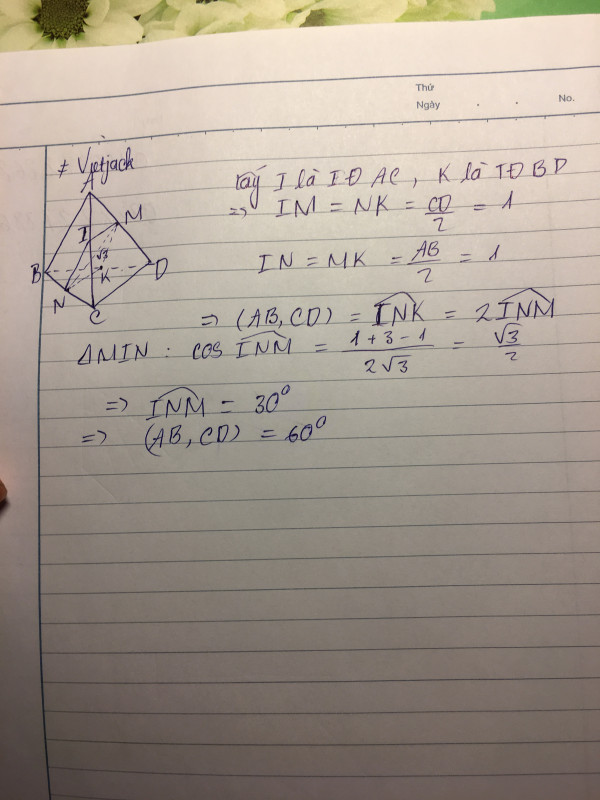 Thứ
Ngày . . No.
≠ Vietjack
Lấy I là TĐ AC, K là TĐ BD
=> IM = NK = CD/2 = 1
IN = MK = AB/2 = 1
=> (AB, CD) = \widehat{INK} = 2\widehat{INM}
ΔMIN : cos \widehat{INM} = (1 + 3 - 1)/(2√3) = √3/2
=> \widehat{INM} = 30°
=> (AB, CD) = 60°
A
M
I
√3
B
K
D
N
C